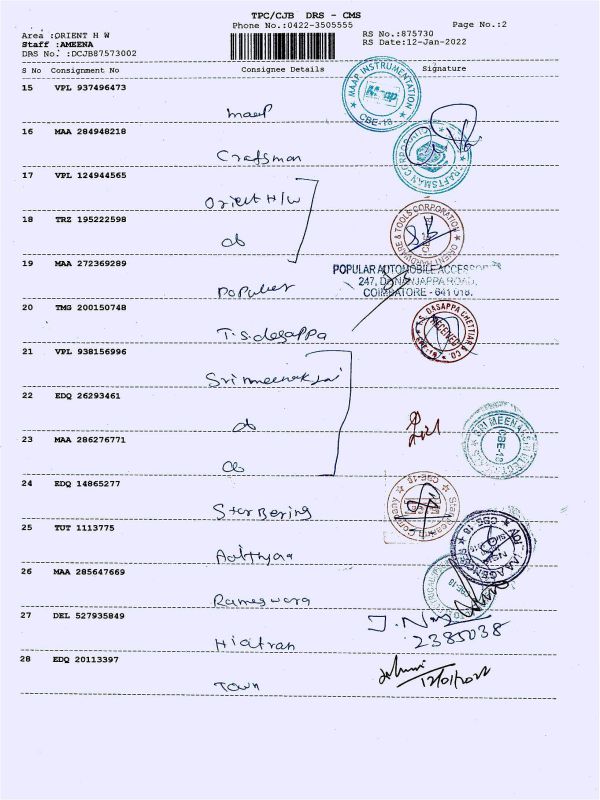 TPC/CJB DRS - CMS
Phone No.:0422-3505555
Page No.:2
Area :ORIENT H W
Staff :AMEENA
DRS No. :DCJB87573002
RS No.:875730
RS Date:12-Jan-2022
S No Consignment No Consignee Details Signature
15 VPL 937496473
maap
MAAP INSTRUMENTATION
Maap
CBE-18
16 MAA 284948218
Craftsman
CRAFTSMAN CORPORATION
17 VPL 124944565
Orient H/W
18 TRZ 195222598
do
ORIENT HARDWARE & TOOLS CORPORATION
19 MAA 272369289
Populer
POPULAR AUTOMOBILE ACCESSOR
247, DHANAJAPPA ROAD,
COIMBATORE - 641 018.
20 TMG 200150748
T.S.dasappa
T.S. DASAPPA CHETTIAR & CO.
RECEIVED
21 VPL 938156996
Sri meenakjai
22 EDQ 26293461
do
23 MAA 286276771
do
SRI MEENA
CBE-18
24 EDQ 14865277
Star Bering
Star Bearing Company
CBE-18
25 TUT 1113775
Adithyaa
CBE-18
26 MAA 285647669
Rameswara
CBE-18
27 DEL 527935849
Hiatran
2385038
28 EDQ 20113397
Town
12/01/2022